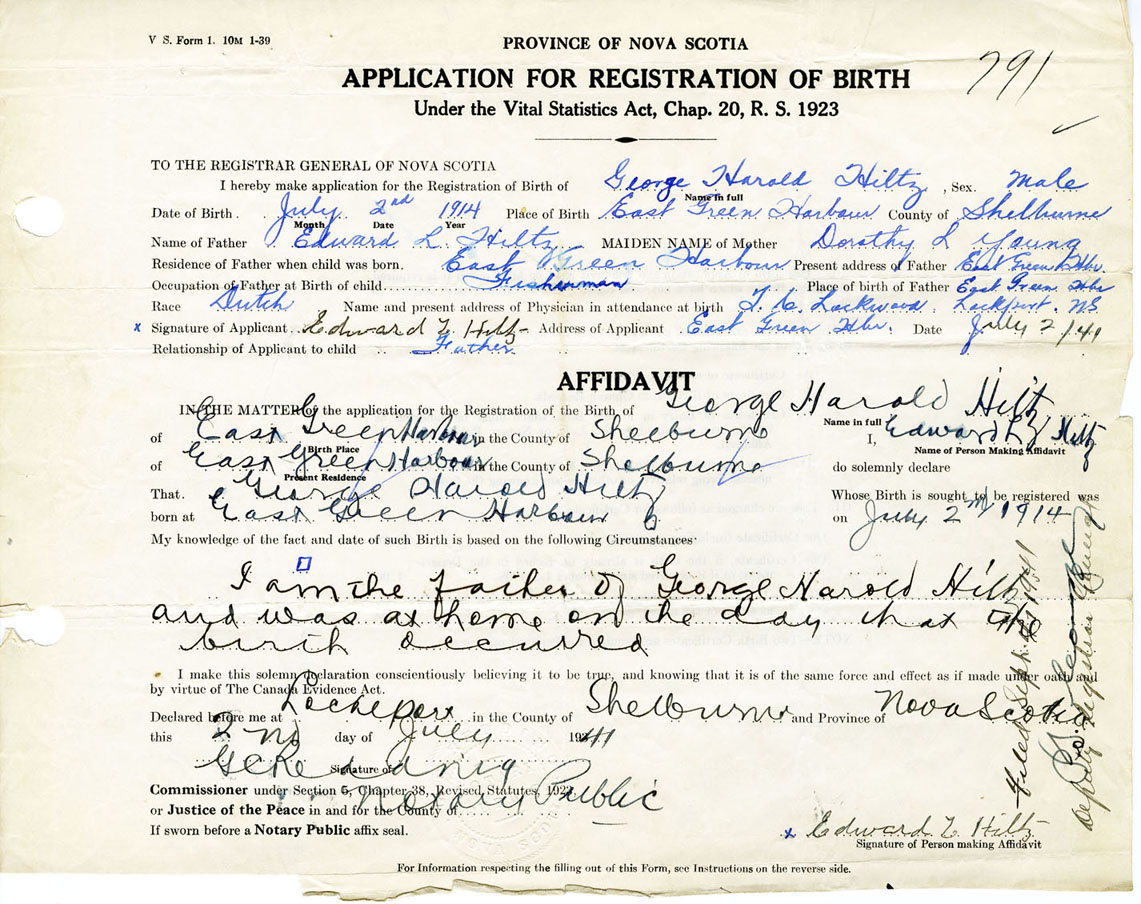 V S. Form 1. 10M 1-39
PROVINCE OF NOVA SCOTIA
791
APPLICATION FOR REGISTRATION OF BIRTH
Under the Vital Statistics Act, Chap. 20, R. S. 1923
TO THE REGISTRAR GENERAL OF NOVA SCOTIA
I hereby make application for the Registration of Birth of George Harold Hiltz, Sex. Male
Name in full
Date of Birth. July 2nd 1914 Place of Birth East Green Harbour County of Shelburne
Month Date Year
Name of Father Edward L Hiltz MAIDEN NAME of Mother Dorothy L Young
Residence of Father when child was born. East Green Harbour Present address of Father East Green Hbr.
Occupation of Father at Birth of child. Fisherman Place of birth of Father East Green Hbr
Race Dutch Name and present address of Physician in attendance at birth T. C. Lockwood. Lockport. NS
x Signature of Applicant Edward L Hiltz Address of Applicant East Green Hbr. Date July 2/41
Relationship of Applicant to child Father
AFFIDAVIT
IN THE MATTER of the application for the Registration of the Birth of George Harold Hiltz
Name in full
of East Green Harbour in the County of Shelburne I, Edward L Hiltz
Birth Place Name of Person Making Affidavit
of East Green Harbour in the County of Shelburne do solemnly declare
Present Residence
That. George Harold Hiltz Whose Birth is sought to be registered was
born at East Green Harbour on July 2nd 1914
My knowledge of the fact and date of such Birth is based on the following Circumstances
I am the father of George Harold Hiltz
and was at home on the day that the
birth occurred
I make this solemn declaration conscientiously believing it to be true, and knowing that it is of the same force and effect as if made under oath and
by virtue of The Canada Evidence Act.
Declared before me at Lockeport in the County of Shelburne and Province of Nova Scotia
this 2nd day of July 1941
Signature of
Commissioner under Section 5, Chapter 38, Revised Statutes, 1923
Notary Public
or Justice of the Peace in and for the County of
If sworn before a Notary Public affix seal.
x Edward L Hiltz
Signature of Person making Affidavit
For Information respecting the filling out of this Form, see Instructions on the reverse side.
Filed Sept. 1941
Deputy Registrar General